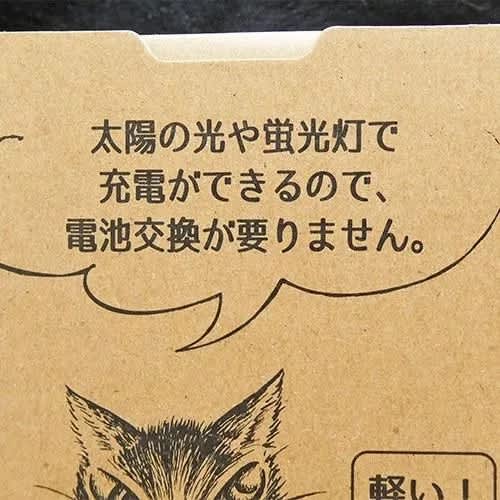 太陽の光や蛍光灯で
充電ができるので、
電池交換が要りません。
軽い！